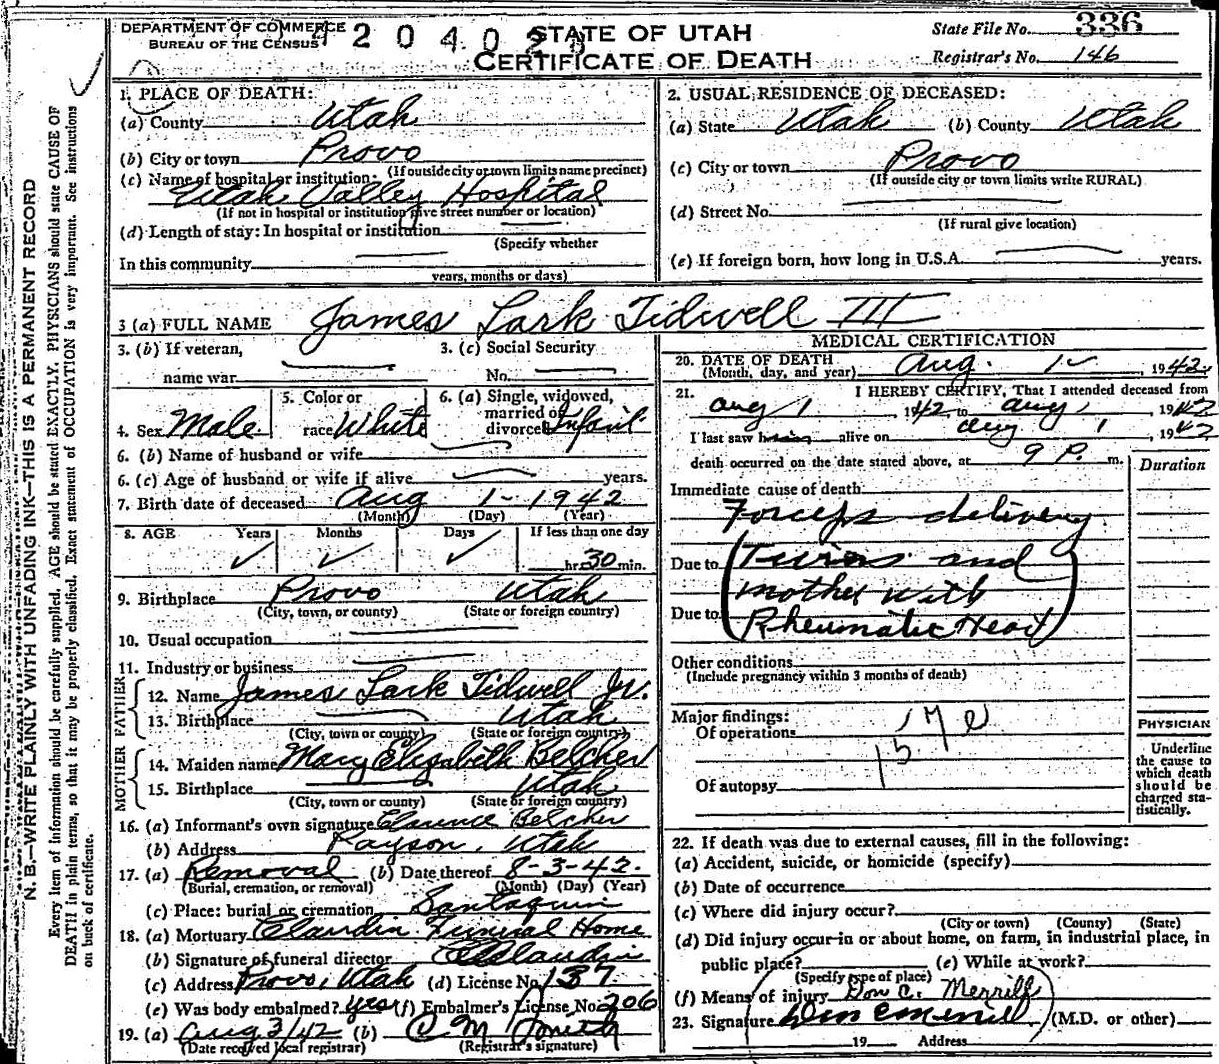 DEPARTMENT OF COMMERCE
BUREAU OF THE CENSUS
4 2 0 4 0 2
STATE OF UTAH
CERTIFICATE OF DEATH
State File No. 336
Registrar's No. 146
N. B.—WRITE PLAINLY WITH UNFADING INK—THIS IS A PERMANENT RECORD
Every item of information should be carefully supplied. AGE should be stated EXACTLY. PHYSICIANS should state CAUSE OF
DEATH in plain terms, so that it may be properly classified. Exact statement of OCCUPATION is very important. See instructions
on back of certificate.
1. PLACE OF DEATH:
(a) County Utah
(b) City or town Provo
(If outside city or town limits name precinct)
(c) Name of hospital or institution:
Utah Valley Hospital
(If not in hospital or institution give street number or location)
(d) Length of stay: In hospital or institution
(Specify whether
In this community
years, months or days)
2. USUAL RESIDENCE OF DECEASED:
(a) State Utah (b) County Utah
(c) City or town Provo
(If outside city or town limits write RURAL)
(d) Street No.
(If rural give location)
(e) If foreign born, how long in U.S.A. years.
3 (a) FULL NAME James Lark Tidwell III
3. (b) If veteran,
name war
3. (c) Social Security
No.
4. Sex Male
5. Color or
race White
6. (a) Single, widowed,
married or
divorced Infant
6. (b) Name of husband or wife
6. (c) Age of husband or wife if alive years.
7. Birth date of deceased Aug 1 - 1942
(Month) (Day) (Year)
8. AGE Years Months Days If less than one day
hr. 30 min.
9. Birthplace Provo Utah
(City, town, or county) (State or foreign country)
10. Usual occupation
11. Industry or business
FATHER
12. Name James Lark Tidwell Jr.
13. Birthplace Utah
(City, town or county) (State or foreign country)
MOTHER
14. Maiden name Mary Elizabeth Belcher
15. Birthplace Utah
(City, town or county) (State or foreign country)
16. (a) Informant's own signature Clarence Belcher
(b) Address Payson, Utah
17. (a) Removal (b) Date thereof 8-3-42.
(Burial, cremation, or removal) (Month) (Day) (Year)
(c) Place: burial or cremation Santaquin
18. (a) Mortuary Claudin Funeral Home
(b) Signature of funeral director
(c) Address Provo, Utah (d) License No. 137
(e) Was body embalmed? yes (f) Embalmer's License No. 206
19. (a) Aug 3/42 (b) C M Smith
(Date received local registrar) (Registrar's signature)
MEDICAL CERTIFICATION
20. DATE OF DEATH
(Month, day, and year) Aug. 1 - , 1942.
21. I HEREBY CERTIFY, That I attended deceased from
Aug 1 1942, to Aug 1, 1942
I last saw him alive on Aug 1, 1942
death occurred on the date stated above, at 9 P. m.
Duration
Immediate cause of death:
Forceps delivery
Due to (Twins and
mother with
Due to Rheumatic Heart)
Other conditions
(Include pregnancy within 3 months of death)
Major findings:
Of operations
Of autopsy
PHYSICIAN
Underline
the cause to
which death
should be
charged sta-
tistically.
22. If death was due to external causes, fill in the following:
(a) Accident, suicide, or homicide (specify)
(b) Date of occurrence
(c) Where did injury occur?
(City or town) (County) (State)
(d) Did injury occur in or about home, on farm, in industrial place, in
public place? (e) While at work?
(Specify type of place)
(f) Means of injury Don C. Merrill
23. Signature Don C Merrill (M.D. or other)
19 Address